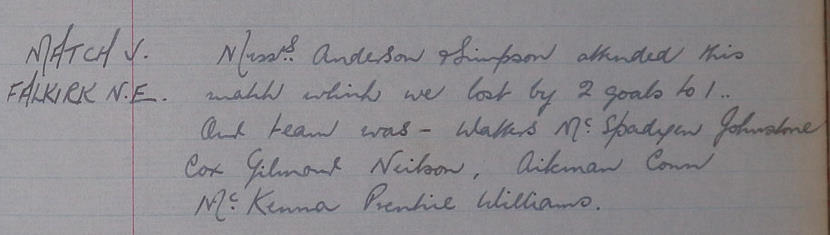 MATCH V. Messrs. Anderson & Simpson attended this
FALKIRK N.E. match which we lost by 2 goals to 1..
Our team was - Watters McSpadyen Johnstone
Cox Gilmour Neilson, Aikman Conn
McKenna Prentice Williams.